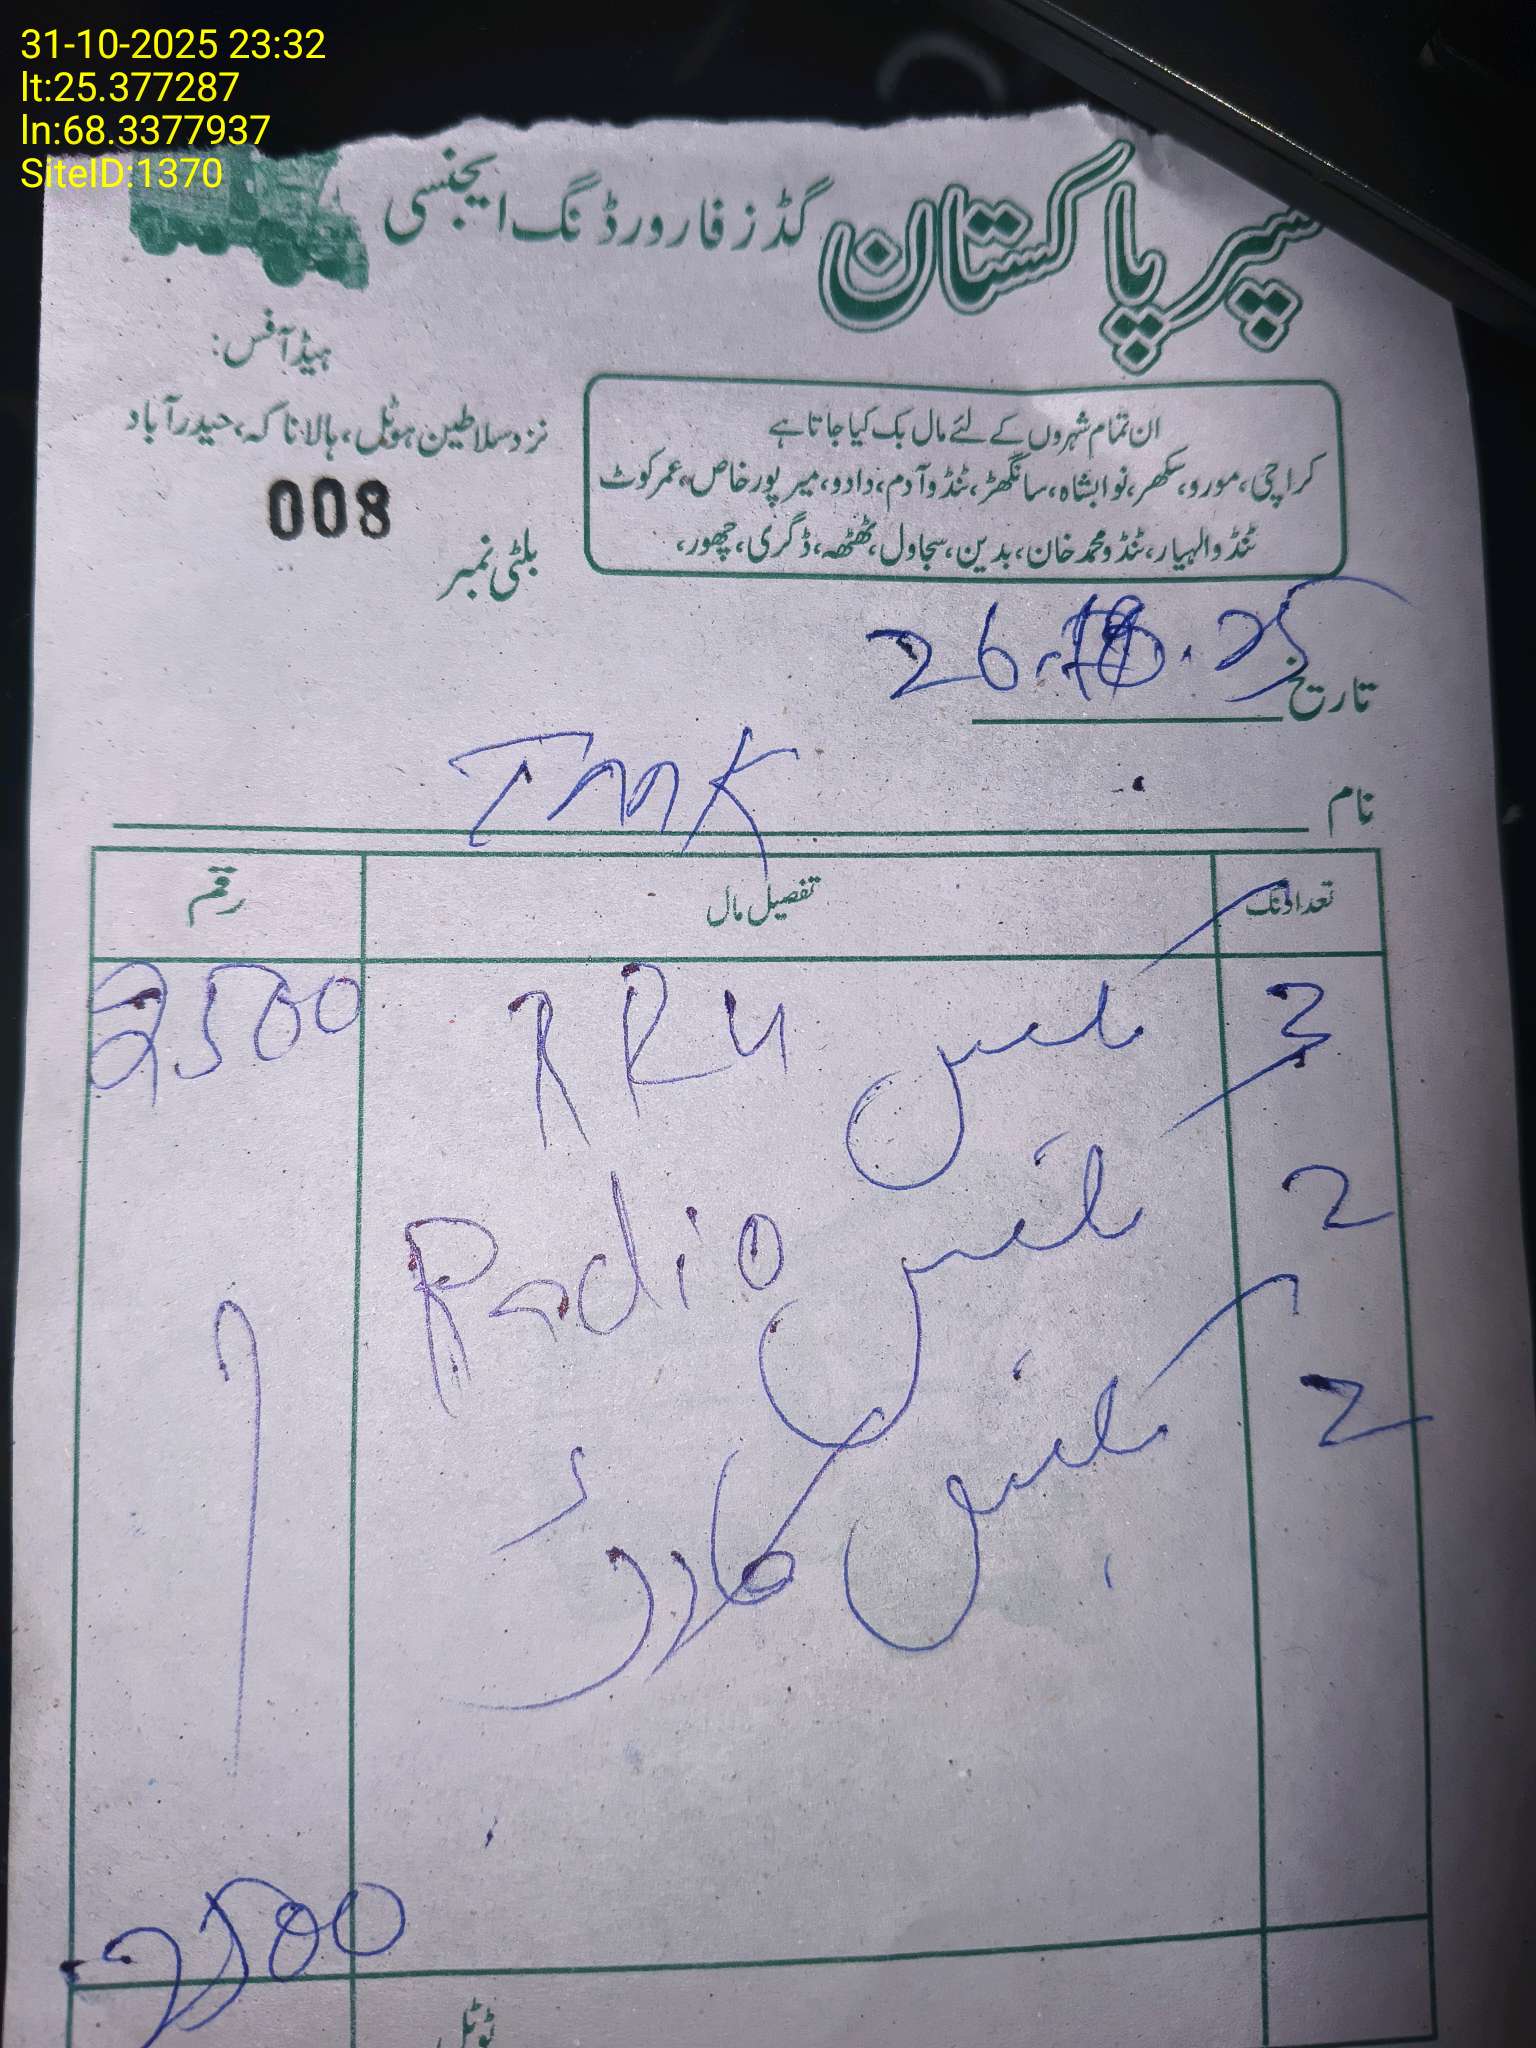 31-10-2025 23:32
lt:25.377287
ln:68.3377937
SiteID:1370
سپر پاکستان گڈز فارورڈنگ ایجنسی
ہیڈ آفس:
نزد سلاطین ہوٹل، ہالا ناکہ، حیدرآباد
ان تمام شہروں کے لئے مال بک کیا جاتا ہے
کراچی، مورو، سکھر، نوابشاہ، سانگھڑ، ٹنڈو آدم، دادو، میرپور خاص، عمرکوٹ
ٹنڈوالہیار، ٹنڈو محمد خان، بدین، سجاول، ٹھٹھہ، ڈگری، چھور،
بلٹی نمبر 008
تاریخ 26. .25
نام TMK
تعداد نگ تفصیل مال رقم
3 RRU 2500
2 Radio
2 کارڈ
2500
ٹوٹل